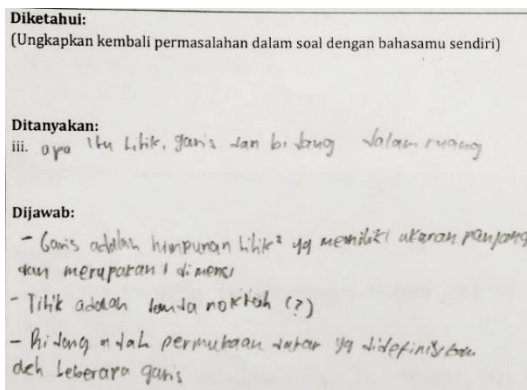 Diketahui:
(Ungkapkan kembali permasalahan dalam soal dengan bahasamu sendiri)
Ditanyakan:
iii. apa itu titik, garis dan bidang dalam ruang
Dijawab:
- Garis adalah himpunan titik² yg memiliki ukuran panjang
dan merupakan 1 dimensi
- Titik adalah tanda noktah (?)
- Bidang adalah permukaan datar yg didefinisikan
oleh beberapa garis